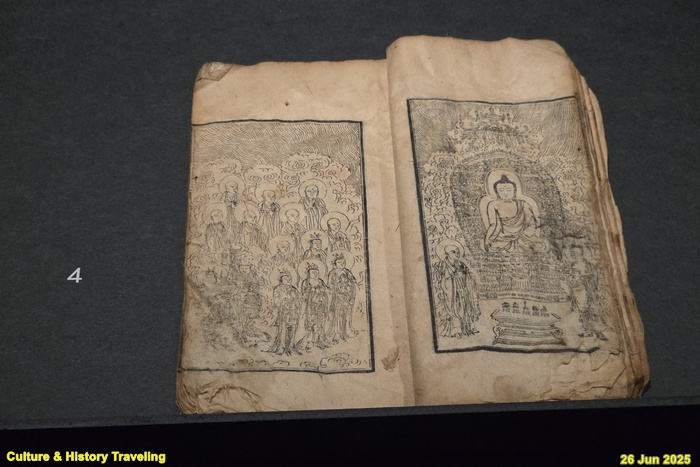 4
Culture & History Traveling
26 Jun 2025